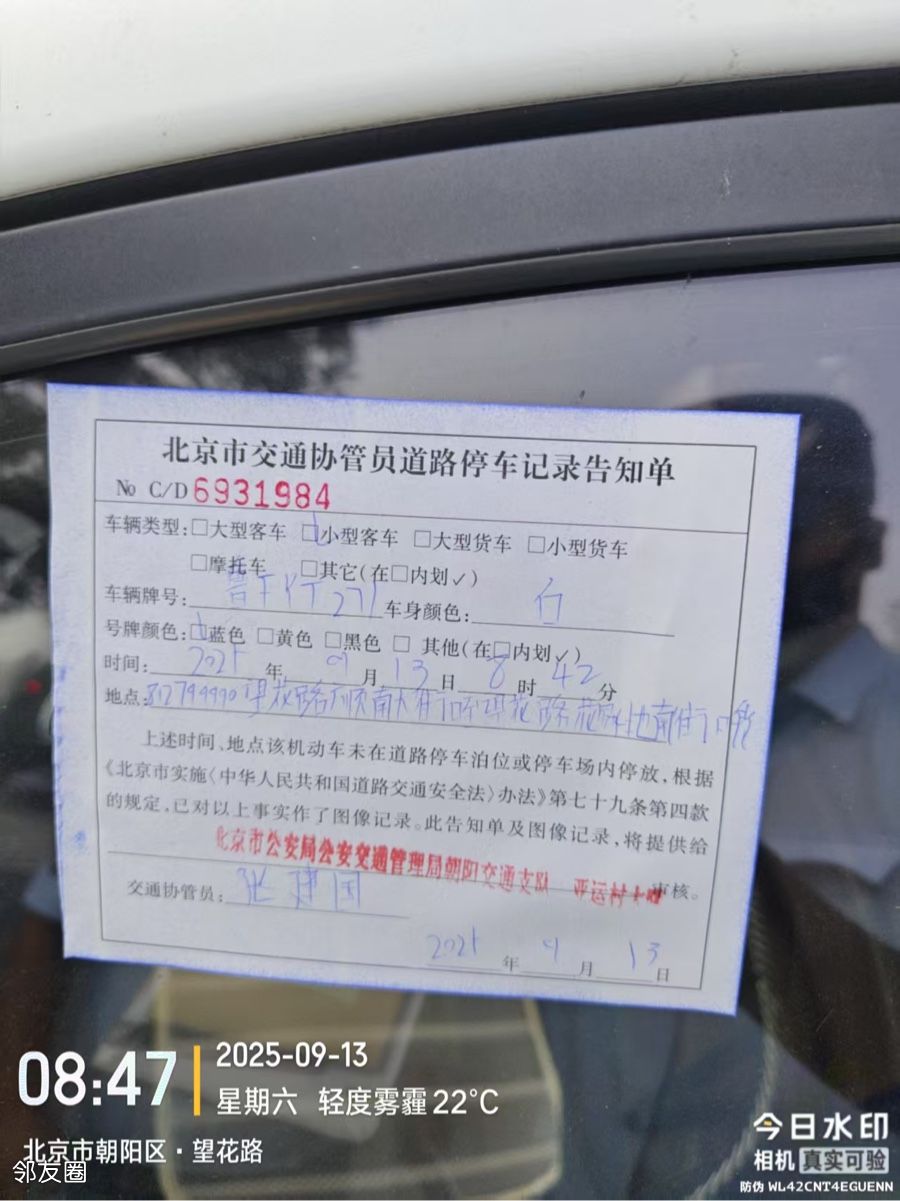 北京市交通协管员道路停车记录告知单
№ C/D 6931984
车辆类型:□大型客车 □小型客车 □大型货车 □小型货车
□摩托车 □其它(在□内划✓)
车辆牌号: 271 车身颜色: 白
号牌颜色:□蓝色 □黄色 □黑色 □ 其他(在□内划✓)
时间: 2025 年 9 月 13 日 8 时 42 分
地点: 望花路 南大街 望花路 南街
上述时间、地点该机动车未在道路停车泊位或停车场内停放,根据
《北京市实施〈中华人民共和国道路交通安全法〉办法》第七十九条第四款
的规定,已对以上事实作了图像记录。此告知单及图像记录,将提供给
北京市公安局公安交通管理局朝阳交通支队 亚运村大队 审核。
交通协管员: 张建国
2025 年 9 月 13 日
08:47
2025-09-13
星期六 轻度雾霾 22°C
北京市朝阳区·望花路
邻友圈
今日水印
相机 真实可验
防伪 WL42CNT4EGUENN